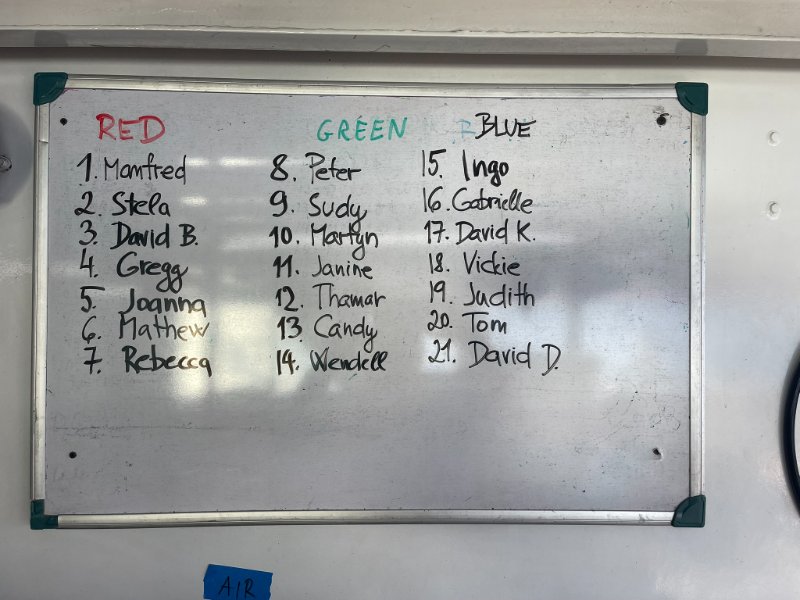 RED
1. Manfred
2. Stela
3. David B.
4. Gregg
5. Joanna
6. Mathew
7. Rebecca
GREEN
8. Peter
9. Sudy
10. Martyn
11. Janine
12. Thamar
13. Candy
14. Wendell
BLUE
15. Ingo
16. Gabrielle
17. David K.
18. Vickie
19. Judith
20. Tom
21. David D.
AIR